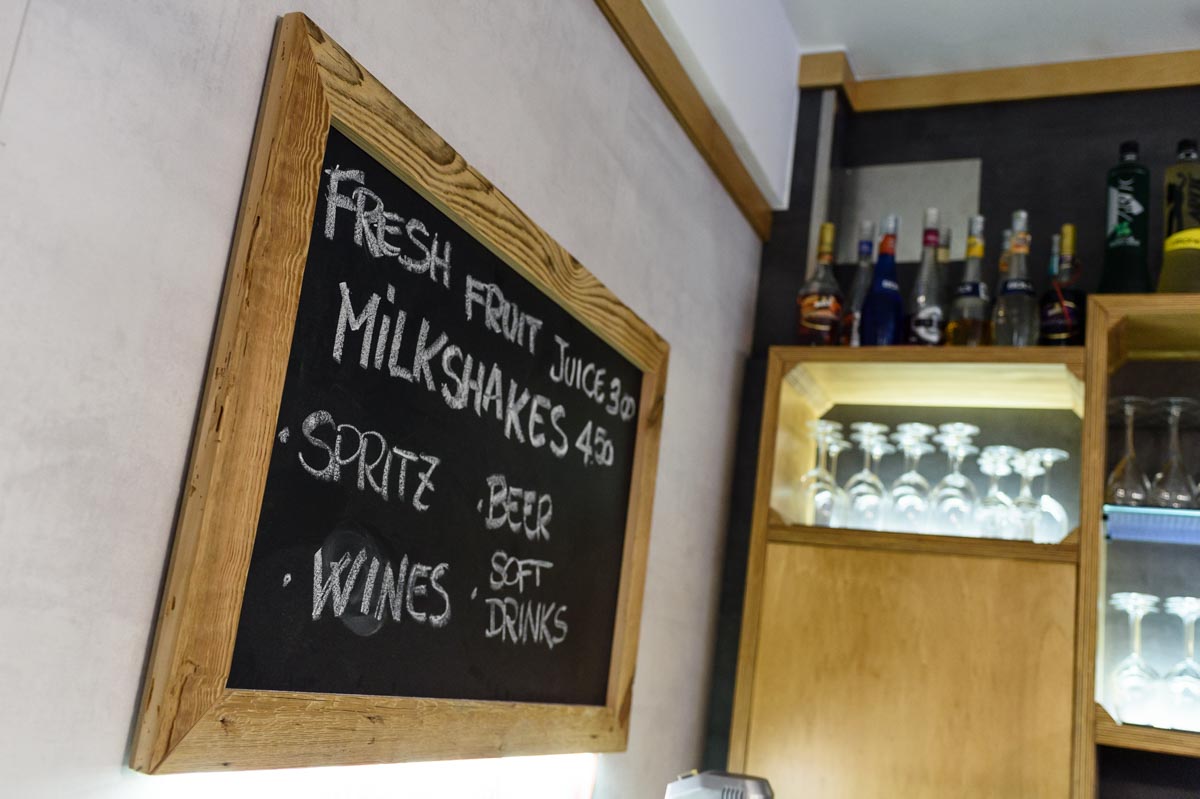 FRESH FRUIT JUICE 3 00
MILKSHAKES 4.50
· SPRITZ
· BEER
· WINES
· SOFT
DRINKS